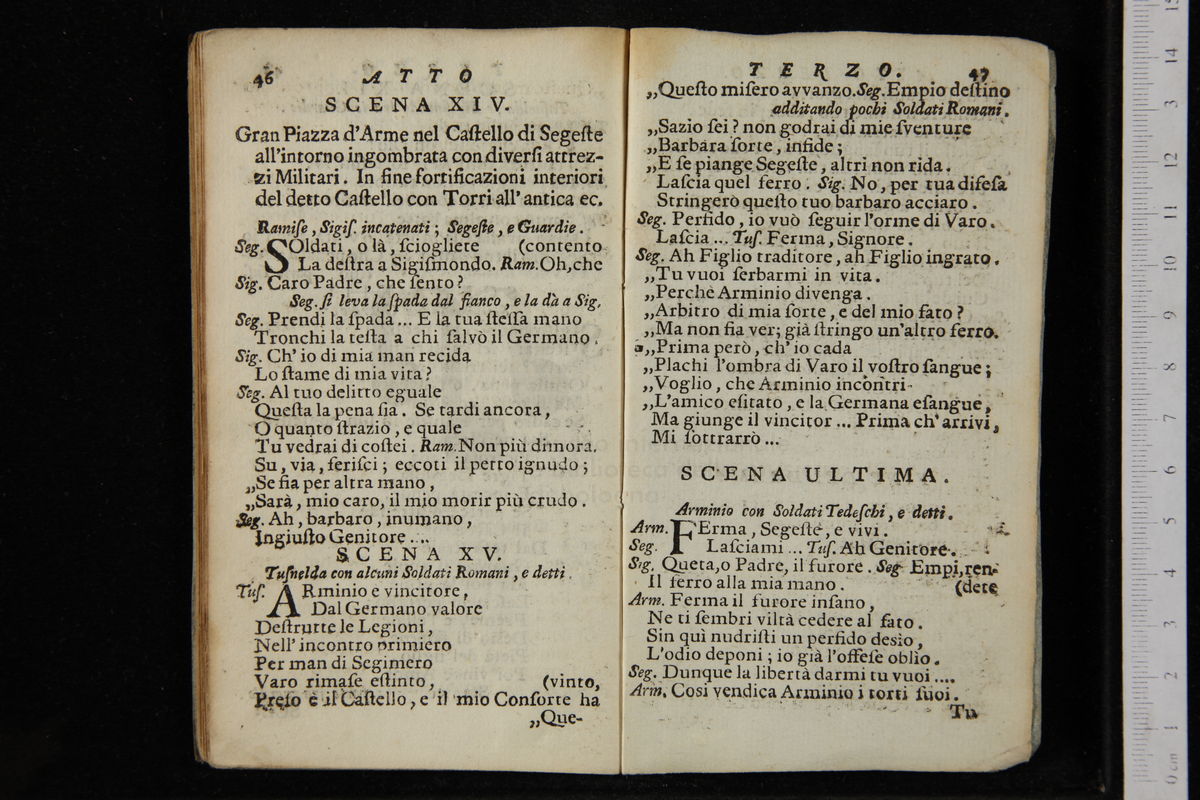 46 ATTO
SCENA XIV.
Gran Piazza d'Arme nel Caſtello di Segeſte
all'intorno ingombrata con diverſi attrez-
zi Militari. In fine fortificazioni interiori
del detto Caſtello con Torri all' antica ec.
Ramiſe, Sigiſ. incatenati; Segeſte, e Guardie.
Seg. SOldati, o là, ſciogliete (contento
La deſtra a Sigiſmondo. Ram. Oh, che
Sig. Caro Padre, che ſento?
Seg. ſi leva la ſpada dal fianco, e la dà a Sig.
Seg. Prendi la ſpada... E la tua ſteſſa mano
Tronchi la teſta a chi ſalvò il Germano.
Sig. Ch' io di mia man recida
Lo ſtame di mia vita?
Seg. Al tuo delitto eguale
Queſta la pena ſia. Se tardi ancora,
O quanto ſtrazio, e quale
Tu vedrai di coſtei. Ram. Non più dimora.
Su, via, feriſci; eccoti il petto ignudo;
„Se fia per altra mano,
„Sarà, mio caro, il mio morir più crudo.
Seg. Ah, barbaro, inumano,
Ingiuſto Genitore....
SCENA XV.
Tuſnelda con alcuni Soldati Romani, e detti.
Tuſ. ARminio e vincitore,
Dal Germano valore
Deſtrutte le Legioni,
Nell' incontro primiero
Per man di Segimero
Varo rimaſe eſtinto, (vinto,
Preſo è il Caſtello, e il mio Conſorte ha
„Que-
TERZO. 47
„Queſto miſero avvanzo. Seg. Empio deſtino
additando pochi Soldati Romani.
„Sazio ſei? non godrai di mie ſventure
„Barbara ſorte, infide;
„E ſe piange Segeſte, altri non rida.
Laſcia quel ferro. Sig. No, per tua difeſa
Stringerò queſto tuo barbaro acciaro.
Seg. Perfido, io vuò ſeguir l'orme di Varo.
Laſcia... Tuſ. Ferma, Signore.
Seg. Ah Figlio traditore, ah Figlio ingrato.
„Tu vuoi ſerbarmi in vita.
„Perchè Arminio divenga.
„Arbitro di mia ſorte, e del mio fato?
„Ma non fia ver; già ſtringo un'altro ferro.
„Prima però, ch' io cada
„Plachi l'ombra di Varo il voſtro ſangue;
„Voglio, che Arminio incontri
„L'amico eſitato, e la Germana eſangue,
Ma giunge il vincitor... Prima ch' arrivi,
Mi ſottrarrò...
SCENA ULTIMA.
Arminio con Soldati Tedeſchi, e detti.
Arm. FErma, Segeſte, e vivi.
Seg. Laſciami... Tuſ. Ah Genitore.
Sig. Queta, o Padre, il furore. Seg Empi, ren-
Il ferro alla mia mano. (dete
Arm. Ferma il furore inſano,
Ne ti ſembri viltà cedere al fato.
Sin quì nudriſti un perfido desìo,
L'odio deponi; io già l'offeſe oblìo.
Seg. Dunque la libertà darmi tu vuoi....
Arm. Cosi vendica Arminio i torti ſuoi.
Tu